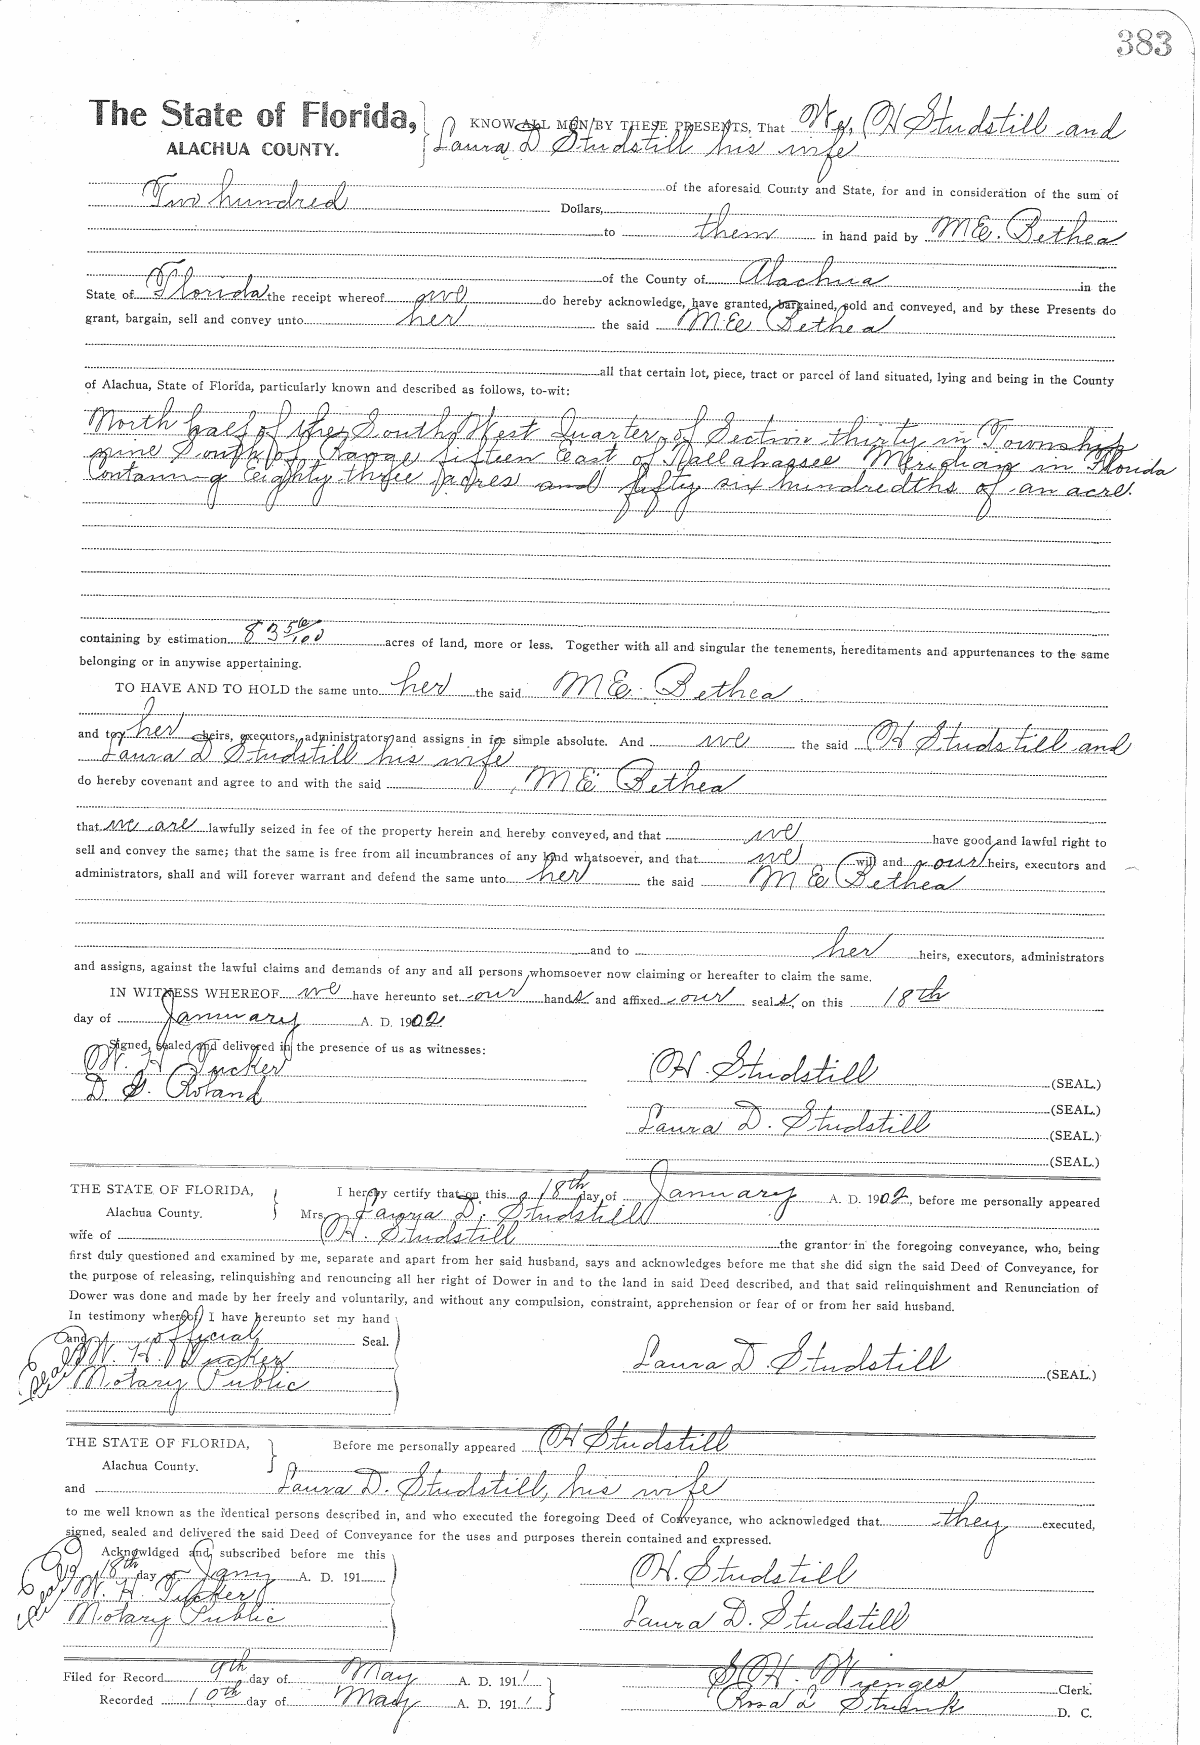 383
The State of Florida, KNOW ALL MEN BY THESE PRESENTS, That We, H Studstill and
ALACHUA COUNTY. Laura D Studstill his wife
of the aforesaid County and State, for and in consideration of the sum of
Two hundred Dollars,
to them in hand paid by M E. Bethea
of the County of Alachua in the
State of Florida the receipt whereof we do hereby acknowledge, have granted, bargained, sold and conveyed, and by these Presents do
grant, bargain, sell and convey unto her the said M E Bethea
all that certain lot, piece, tract or parcel of land situated, lying and being in the County
of Alachua, State of Florida, particularly known and described as follows, to-wit:
North half of the South West Quarter of Section thirty in Township
nine South of Range fifteen East of Tallahassee Meridian in Florida
Containing Eighty three acres and fifty six hundredths of an acre.
containing by estimation 83 56/100 acres of land, more or less. Together with all and singular the tenements, hereditaments and appurtenances to the same
belonging or in anywise appertaining.
TO HAVE AND TO HOLD the same unto her the said M E. Bethea.
and to her heirs, executors, administrators and assigns in fee simple absolute. And we the said H Studstill and
Laura D Studstill his wife
do hereby covenant and agree to and with the said M E Bethea
that we are lawfully seized in fee of the property herein and hereby conveyed, and that we have good and lawful right to
sell and convey the same; that the same is free from all incumbrances of any kind whatsoever, and that we will and our heirs, executors and
administrators, shall and will forever warrant and defend the same unto her the said M E Bethea
and to her heirs, executors, administrators
and assigns, against the lawful claims and demands of any and all persons whomsoever now claiming or hereafter to claim the same.
IN WITNESS WHEREOF we have hereunto set our hands and affixed our seals, on this 18th
day of January A. D. 1902
Signed, sealed and delivered in the presence of us as witnesses:
W. H Tucker H. Studstill (SEAL.)
D. S. Roland (SEAL.)
Laura D. Studstill (SEAL.)
(SEAL.)
THE STATE OF FLORIDA, I hereby certify that on this 18th day of January A. D. 1902, before me personally appeared
Alachua County. Mrs. Laura D. Studstill
wife of H. Studstill the grantor in the foregoing conveyance, who, being
first duly questioned and examined by me, separate and apart from her said husband, says and acknowledges before me that she did sign the said Deed of Conveyance, for
the purpose of releasing, relinquishing and renouncing all her right of Dower in and to the land in said Deed described, and that said relinquishment and Renunciation of
Dower was done and made by her freely and voluntarily, and without any compulsion, constraint, apprehension or fear of or from her said husband.
In testimony whereof, I have hereunto set my hand
and official Seal.
W. H Tucker Laura D. Studstill (SEAL.)
Seal Notary Public
THE STATE OF FLORIDA, Before me personally appeared H Studstill
Alachua County.
and Laura D. Studstill, his wife
to me well known as the identical persons described in, and who executed the foregoing Deed of Conveyance, who acknowledged that they executed,
signed, sealed and delivered the said Deed of Conveyance for the uses and purposes therein contained and expressed.
Acknowldged and subscribed before me this
18th day of Jany A. D. 191 H. Studstill
W. H. Tucker
Seal Notary Public Laura D. Studstill
Filed for Record 9th day of May A. D. 1911 S. H. Wienges Clerk.
Recorded 10th day of May A. D. 1911 D. C.